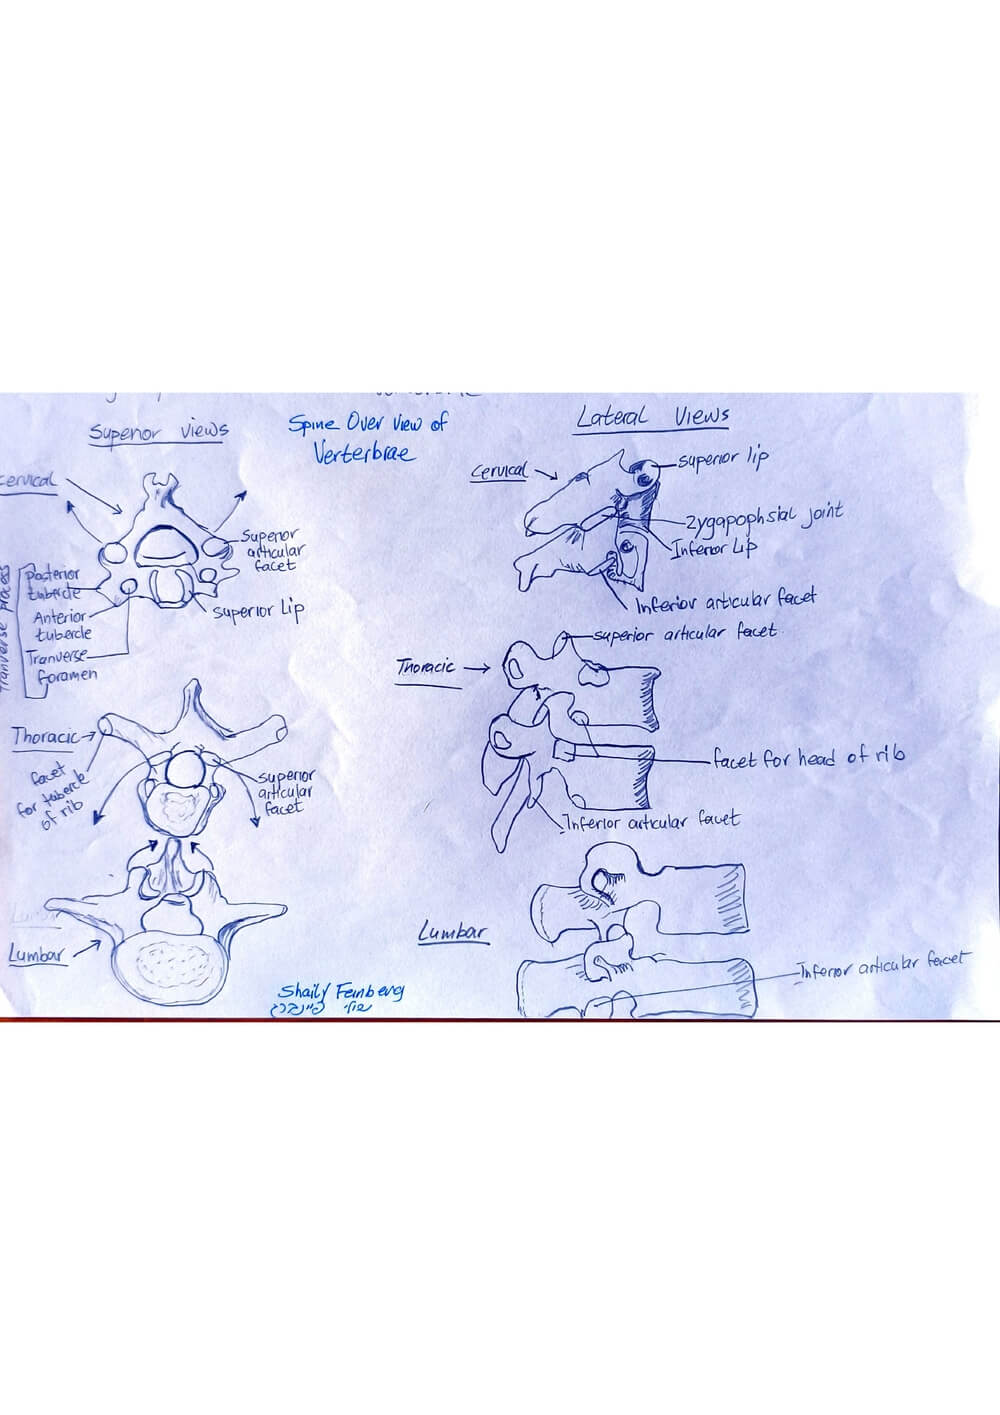 Superior views
Spine Over view of
Verterbrae
Lateral Views
Cervical
Superior
articular
facet
Superior Lip
Posterior
tubercle
Anterior
tubercle
Tranverse
foramen
Tranverse process
Cervical
superior lip
Zygapophsial joint
Inferior Lip
Inferior articular facet
Thoracic
facet
for tubercle
of rib
superior
articular
facet
Thoracic
superior articular facet
facet for head of rib
Inferior articular facet
Lumbar
Lumbar
Lumbar
Inferior articular facet
Shaily Feinberg
שילי פיינברג